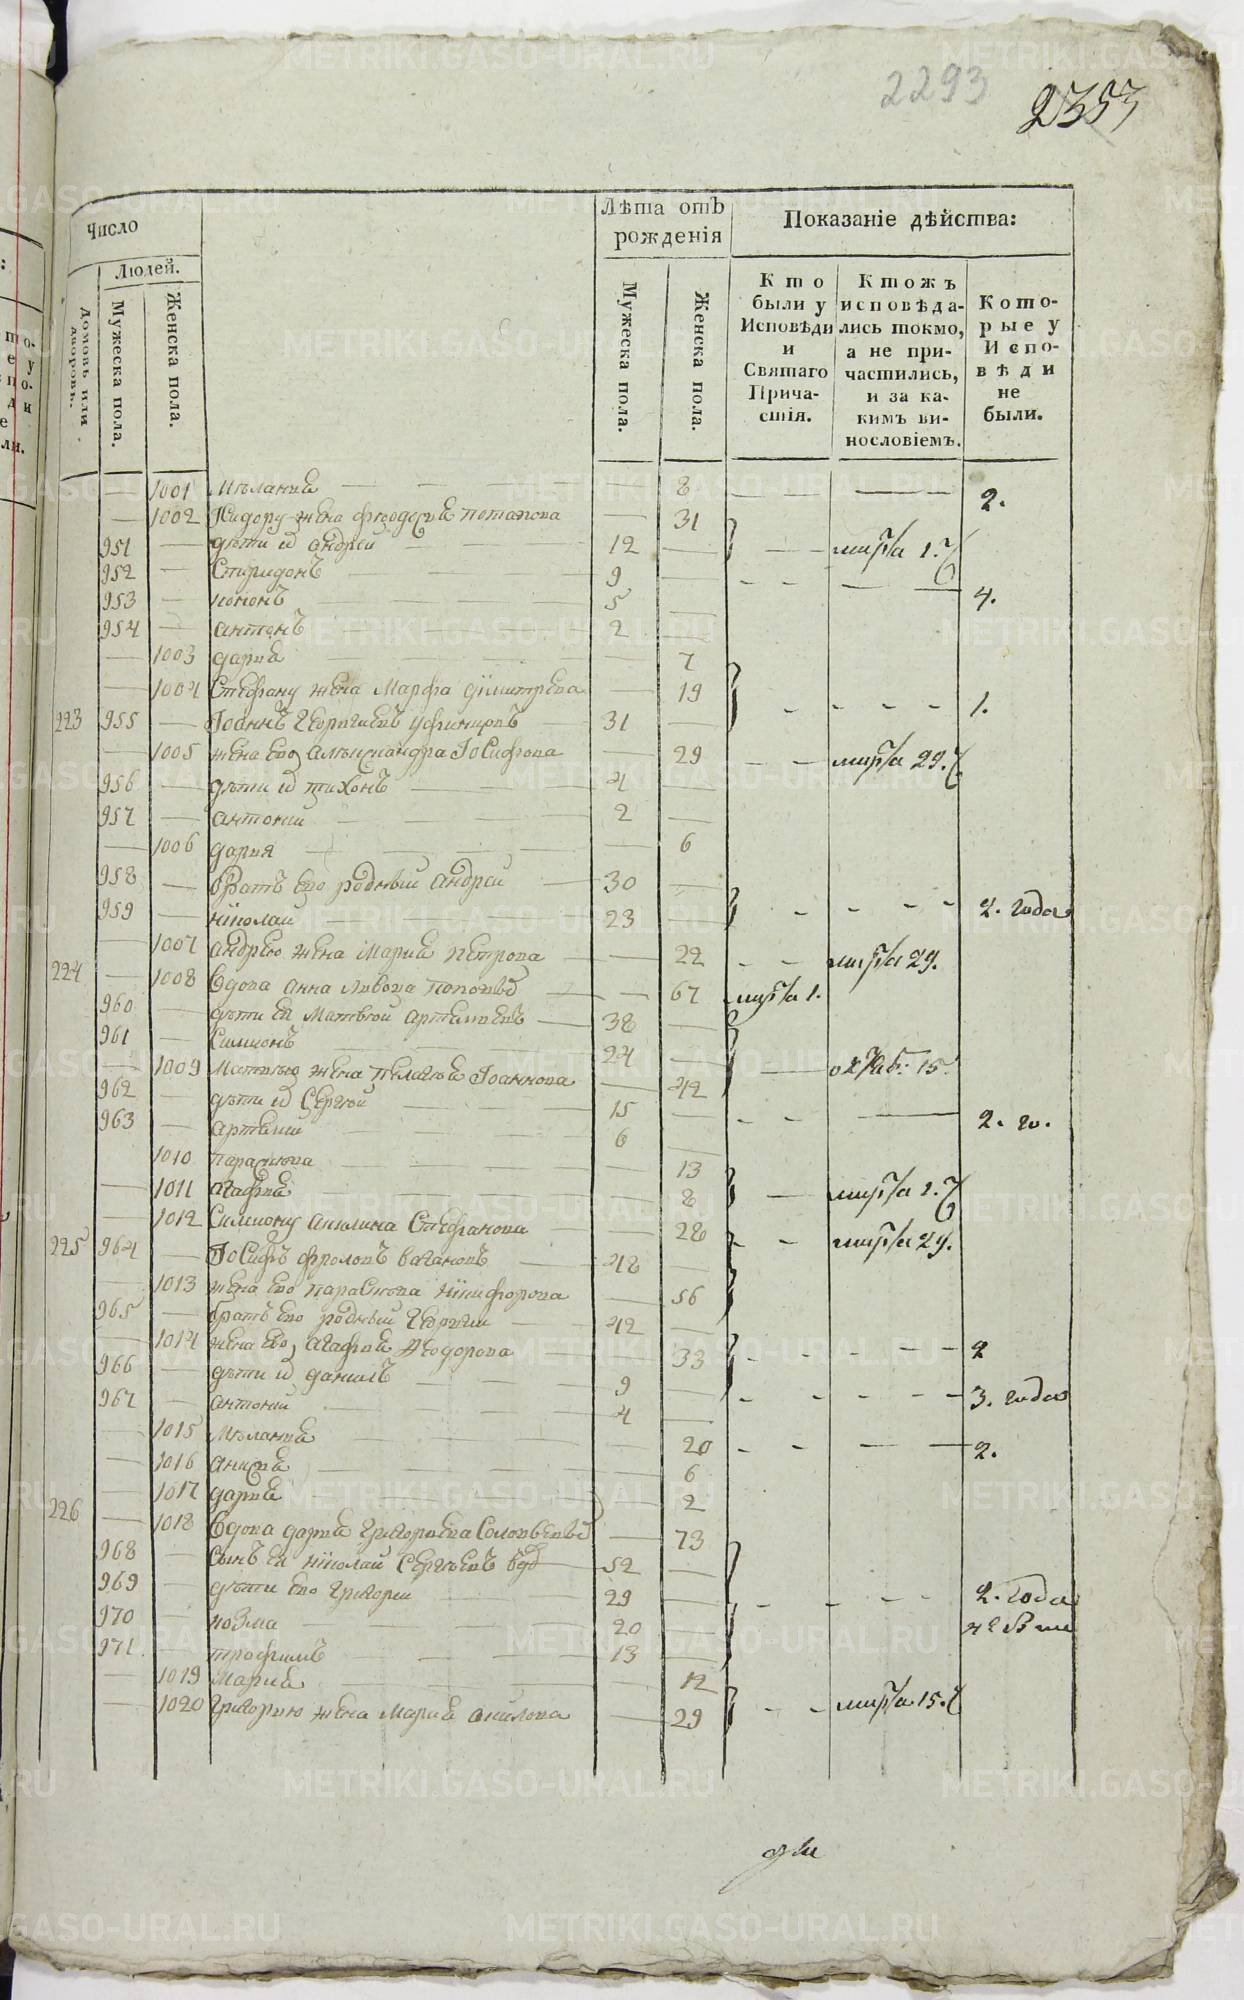 2293
2353
Число
Людей.
Домовъ или дворовъ.
Мужеска пола.
Женска пола.
Лѣта отъ рожденія
Мужеска пола.
Женска пола.
Показаніе дѣйства:
Кто были у Исповѣди и Святаго Причастія.
Ктожъ исповѣдались токмо, а не причастились, и за какимъ винословіемъ.
Которые у Исповѣди не были.
— 1001 Меланіа — 8 — — 2.
— 1002 жена Феодосіа Потапова — 31
951 — дѣти их Андрей 12 — — марта 1.
952 — Спиридонъ 9 —
953 — 5 — 4.
954 — Антонъ 2 —
— 1003 Дарья — 7
— 1004 Стефану жена Марфа Димитрева — 19
223 955 — Іоаннъ Георгіевъ 31 — 1.
— 1005 жена его Александра Іосифова — 29 — — марта 29.
956 — дѣти их Тихонъ 4 —
957 — Антоній 2 —
— 1006 Дарія — 6
958 — братъ его родный Андрей 30 —
959 — Николай 23 — 2. года
— 1007 Андрею жена Маріа Петрова — 22 — — марта 29.
224 — 1008 Вдова Анна Львова — 67 марта 1.
960 — дѣти ея Матвей Артемьевъ 38 —
961 — Симионъ 24 —
— 1009 Матвѣю жена Пелагѣа Іоаннова — 42 — 15.
962 — дѣти их Сергѣй 15 —
963 — Артемій 6 — 2. го.
1010 Парасковa — 13
— 1011 Агафіа — 8 — марта 1.
— 1012 Симиону Акилина Стефанова — 28 — — марта 29.
225 964 — Іосифъ Фроловъ Вагановъ 48 —
— 1013 жена его Парасковa Никифорова — 56
965 — братъ его родный Георгій 42 —
— 1014 жена его Агафіа Феодорова — 33 2
966 — дѣти их Даниилъ 9 —
967 — Антоній 4 — 3. года
— 1015 Меланіа — 20 2.
— 1016 Анисіа — 6
— 1017 Дарьа — 2
226 — 1018 Вдова Дарьа Григорьева — 73
968 — Сынъ ея Николай Сергѣевъ вдо 52 —
969 — дѣти его Григорій 29 — 2. года
970 — Козма 20 — не были
971 — Трофимъ 13 —
— 1019 Маріа — 12
— 1020 Григорію жена Маріа — 29 — — марта 15.